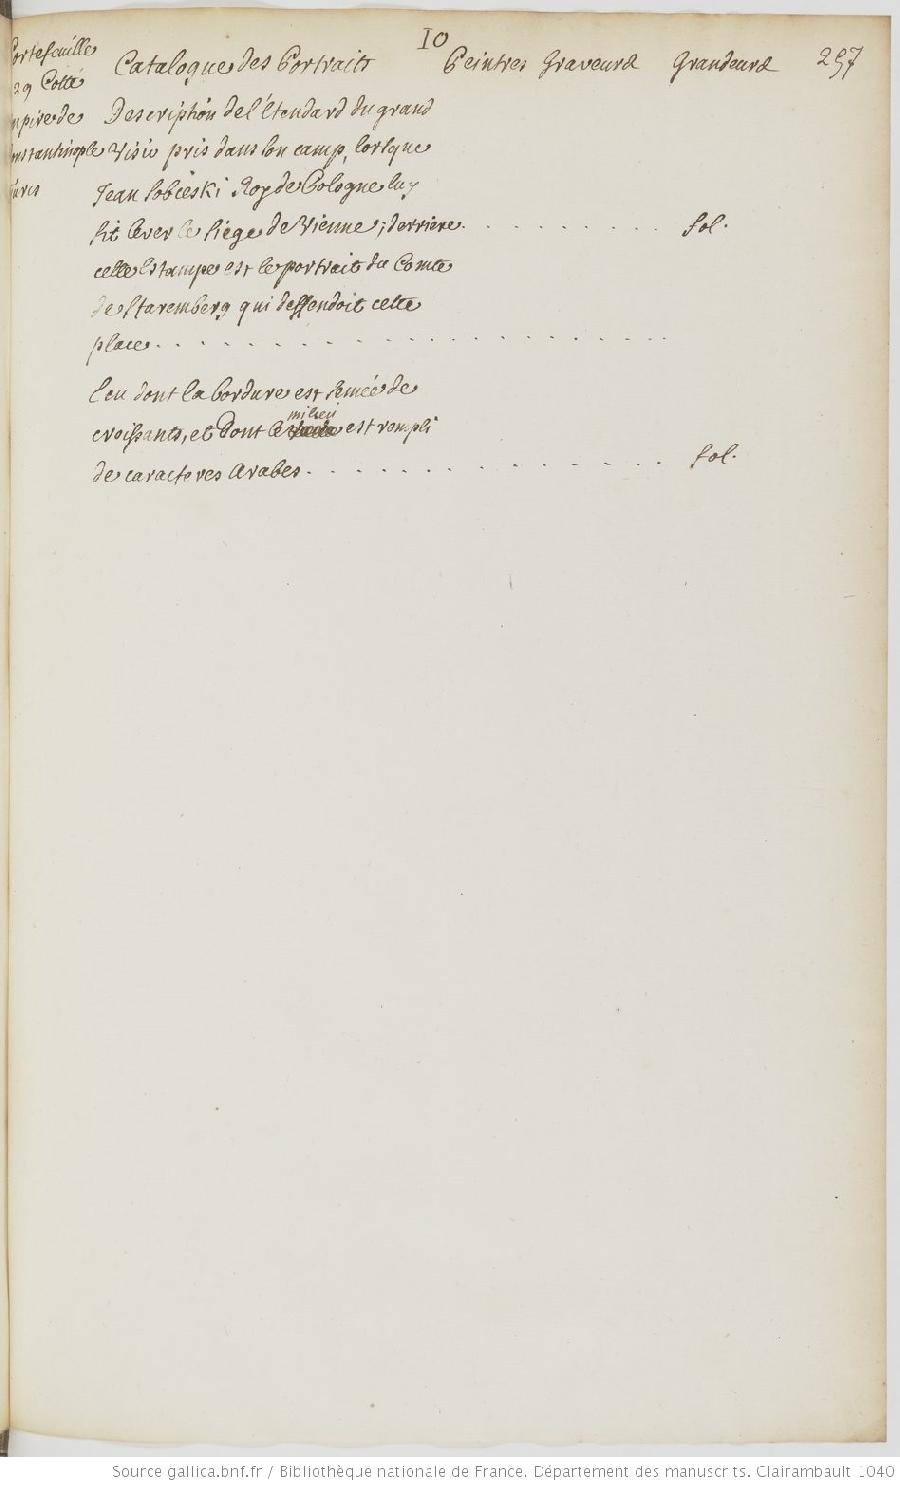 10
257
Portefeuille
29 Cotté
Empire de
Constantinople
Turcs
Catalogue des Portraits Peintres Graveurs Grandeurs
Description de l'Etendard du grand
Visir pris dans son camp, lorsque
Jean Sobieski Roy de Pologne luy
fit lever le siege de Vienne; derriere . . . . . . . . . . fol.
cette Estampe est le portrait du Comte
de Staremberg qui deffendoit cette
place . . . . . . . . . . . . . . . . . .
Ecu dont la bordure est semée de
croissants, et dont le milieu est rempli
de caracteres Arabes . . . . . . . . . . . . fol.
Source gallica.bnf.fr / Bibliothèque nationale de France. Département des manuscrits. Clairambault 1040